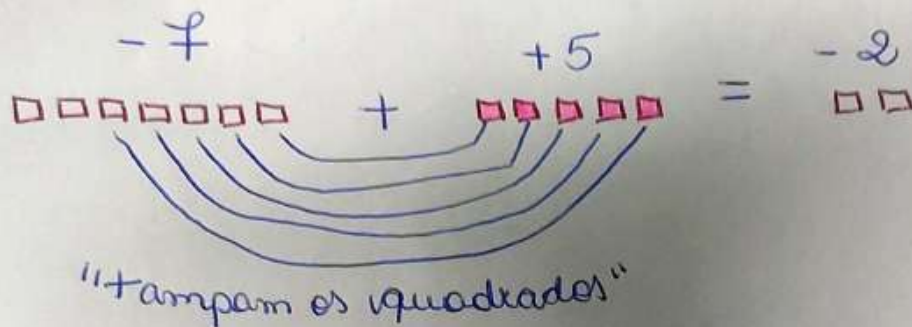 - 7 + 5 - 2
+ =
"tampam os quadrados"